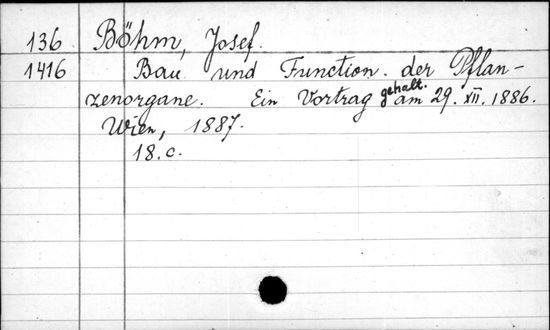 136 Böhm, Josef.
1416 Bau und Function der Pflan-
zenorgane. Ein Vortrag gehalt. am 29. XII. 1886.
Wien, 1887.
18. c.